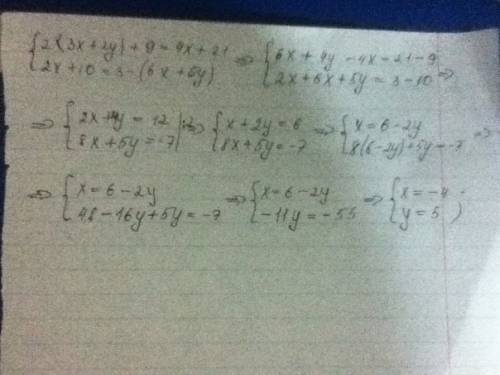 {2(3x+2y)+9=4x+21 2x+10=3-(6x+5y) => {6x+4y-4x=21-9 2x+6x+5y=3-10 =>
=> {2x+4y=12 |:2 8x+5y=-7 => {x+2y=6 8x+5y=-7 => {x=6-2y 8(6-2y)+5y=-7 =>
=> {x=6-2y 48-16y+5y=-7 => {x=6-2y -11y=-55 => {x=-4 y=5